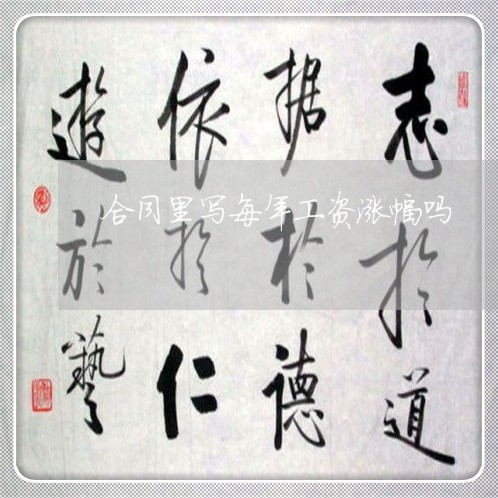 志於道
据於德
依於仁
遊於藝
合同里写每年工资涨幅吗